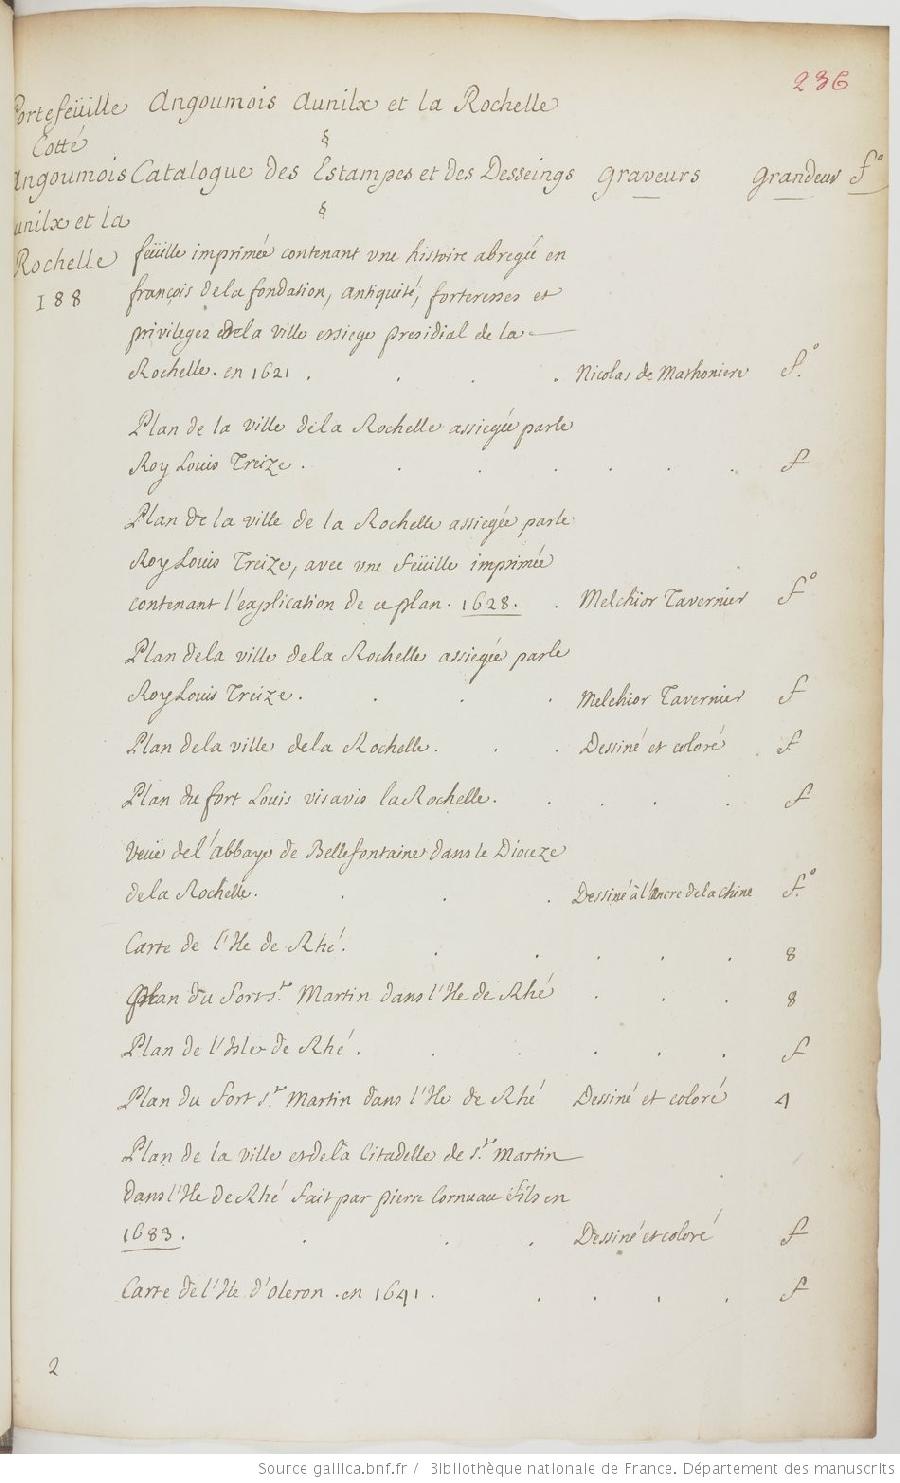 236
Portefeüille Angoumois Aunilx et la Rochelle
Cotté §
Angoumois Catalogue des Estampes et des Desseings graveurs grandeur f.º
aunilx et la §
Rochelle
188
feüille imprimée contenant une histoire abregée en
françois de la fondation, antiquité, forteresses et
privileges de la ville et siege presidial de la
Rochelle. en 1621 . . . . Nicolas de Mathoniere f.º
Plan de la ville de la Rochelle assiegée par le
Roy Louis Treize . . . . . . . f
Plan de la ville de la Rochelle assiegée par le
Roy Louis Treize, avec une feüille imprimée
contenant l'explication de ce plan. 1628. . Melchior Tavernier f.º
Plan de la ville de la Rochelle assiegée par le
Roy Louis Treize . . . . Melchior Tavernier f
Plan de la ville de la Rochelle. . . Dessiné et coloré f
Plan du fort Louis visavis la Rochelle. . . . . f
Veüe de l'abbaye de Bellefontaine dans le Dioceze
de la Rochelle. . . . Dessiné à l'Ancre de la chine f.º
Carte de l'Ile de Rhé. . . . . . 8
Plan du fort s.t Martin dans l'Ile de Rhé . . . 8
Plan de l'Isle de Rhé . . . . . . f
Plan du fort s.t Martin dans l'Ile de Rhé Dessiné et coloré 4
Plan de la ville et de la Citadelle de s.t Martin
dans l'Ile de Rhé fait par pierre Cornuau fils en
1683. . . . Dessiné et coloré f
Carte de l'Ile d'oleron . en 1641 . . . . . f
2
Source gallica.bnf.fr / Bibliothèque nationale de France. Département des manuscrits